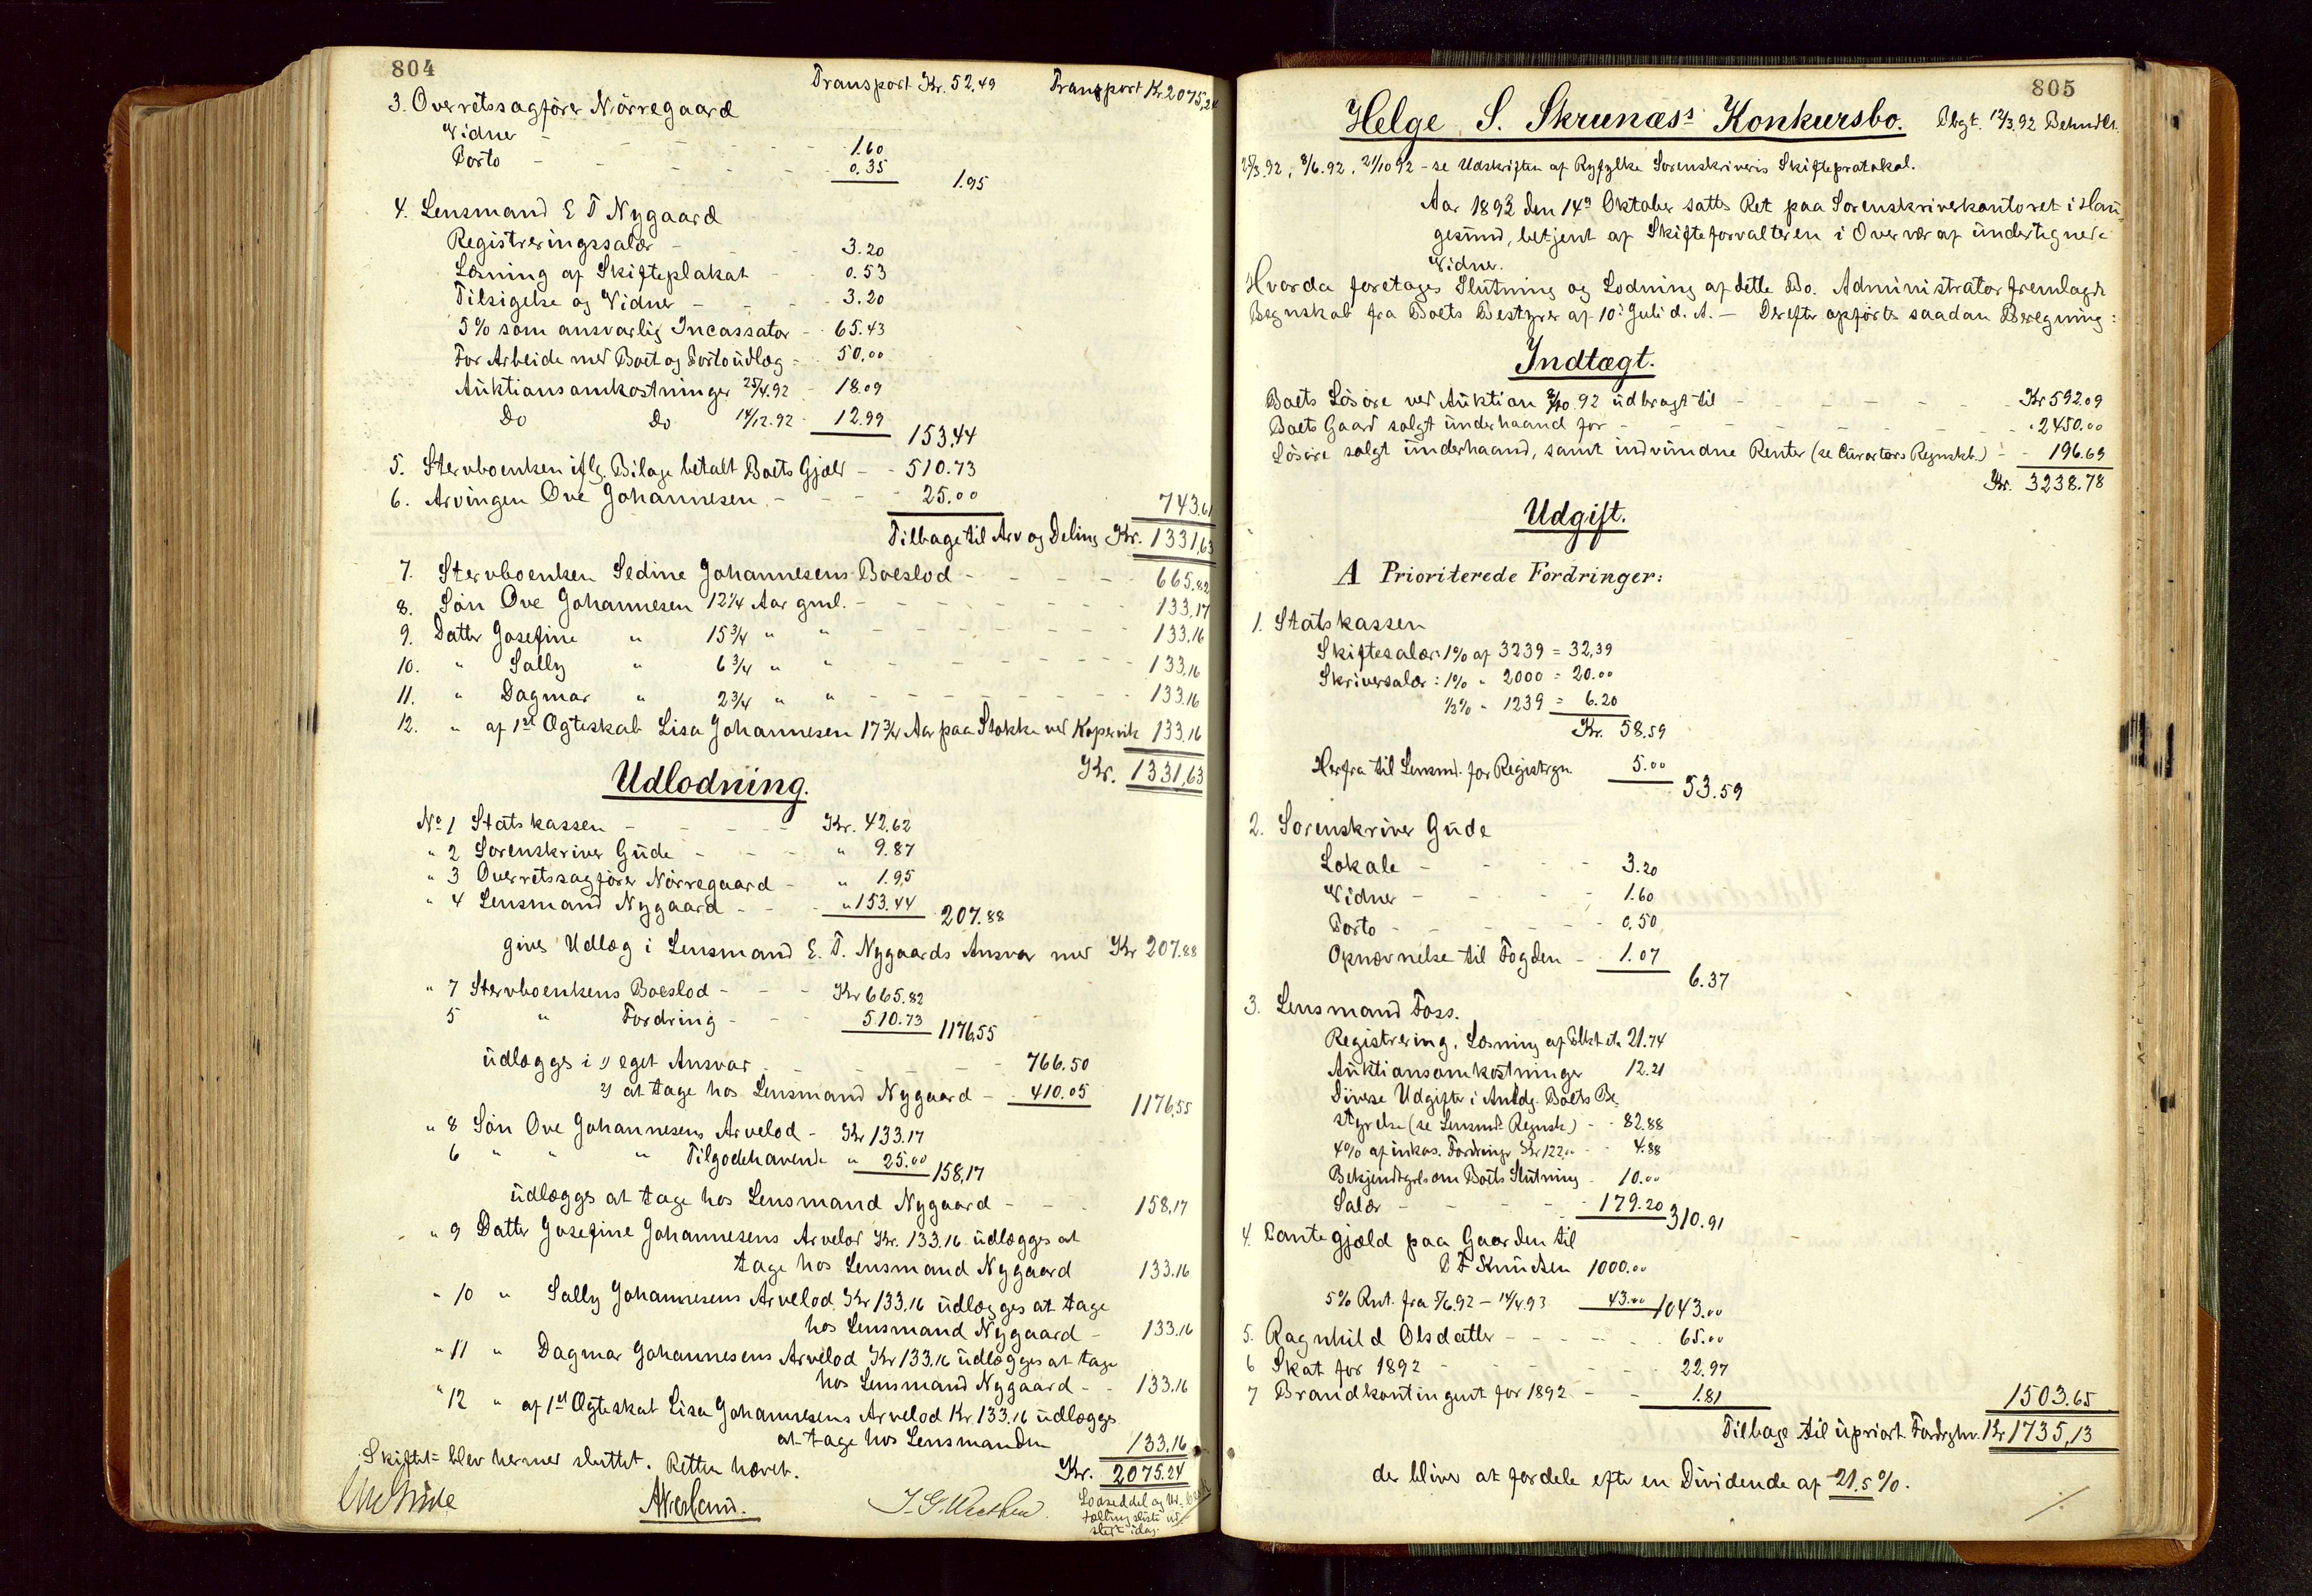 804
Transport Kr. 52.49 Transport Kr 2075,24
3. Overretssagfører Nörregaard
Vidner - - - - - - 1.60
Porto - - - - - 0.35 1.95
4. Lensmand E T Nygaard
Registreringssalær - - - 3.20
Læsning af Skifteplakat - - 0.53
Tilsigelse og Vidner - - - - 3.20
5% som ansvarlig Incassator - - 65.43
For Arbeide med Boet og Portoudlæg - 50.00
Auktionsomkostninger 25/4.92 - 18.09
Do Do 14/12.92 - 12.99
153.44
5. Stervboenken iflg. Bilage betalt Boets Gjæld - - 510.73
6. Arvingen Ove Johannesen - - - - 25.00 743,61
Tilbage til Arv og Deling Kr. 1331,63
7. Stervboenken Sedine Johannesens Boeslod - - - - - 665.82
8. Sön Ove Johannesen 12 1/4 Aar gml. - - - - - - 133,17
9. Datter Josefine " 15 3/4 " " - - - - - - 133.16
10. " Sally " 6 3/4 " " - - - - - - 133,16
11. " Dagmar " 2 3/4 " " - - - - - - 133.16
12. " af 1st Ægteskab Lisa Johannesen 17 3/4 Aar paa Stokke ved Kopervik 133.16
Kr. 1331,63
Udlodning.
No 1 Statskassen - - - - - Kr. 42,62
" 2 Sorenskriver Gude - - - " 9.87
" 3 Overretssagfører Nörregaard - " 1.95
" 4 Lensmand Nygaard - - - " 153.44 207.88
gives Udlæg i Lensmand E. T. Nygaards Ansvar med Kr 207.88
" 7 Stervboenkens Boeslod - - - Kr 665.82
5 " Fordring - - - 510.73 1176,55
udlægges i 1) eget Ansvar - - - - - 766.50
2) at tage hos Lensmand Nygaard - - 410.05 1176,55
" 8 Sön Ove Johannesens Arvelod - Kr 133.17
6 " " " Tilgodehavende " 25.00 158,17
udlægges at tage hos Lensmand Nygaard - - - 158,17
" 9 Datter Josefine Johannesens Arvelod Kr. 133.16 udlægges at
tage hos Lensmand Nygaard 133.16
" 10 " Sally Johannesens Arvelod Kr 133.16 udlægges at tage
hos Lensmand Nygaard - 133.16
" 11 " Dagmar Johannesens Arvelod Kr 133.16 udlægges at tage
hos Lensmand Nygaard - - 133.16
" 12 " af 1st Ægteskab Lisa Johannesens Arvelod Kr. 133.16 udlægges
at tage hos Lensmanden 133.16
Skiftet blev hermed sluttet. Retten hævet. Kr. 2075.24
Lodseddel og
slut idag.
805
Helge S. Skrunæs's Konkursbo. Bbgt. 12/3.92 Behndlt.
25/3.92, 8/6.92, 21/10 92 - se Udskriften af Ryfylke Sorenskriveris Skifteprotokol.
Aar 1893 den 14de Oktober sattes Ret paa Sorenskriverkontoret i Hau-
gesund, betjent af Skifteforvalteren i Overvær af undertegnede
Vidner.
Hvorda foretoges Slutning og Lodning af dette Bo. Administrator fremlagde
Regnskab fra Boets Bestyrer af 10de Juli d. A. - Derefter opførtes saadan Beregning:
Indtægt.
Boets Lösöre ved Auktion 3/10.92 udbragt til - - - - - - - Kr 592.09
Boets Gaard solgt underhaand for - - - - - - - - " 2450.00
Lösöre solgt underhaand, samt indvundne Renter (se Curators Regnskb.) - - 196.69
Kr. 3238.78
Udgift.
A Prioriterede Fordringer:
1. Statskassen
Skiftesalær: 1% af 3239 = 32,39
Skriversalær: 1% " 2000 = 20.00
1/2% " 1239 = 6.20
Kr. 58.59
Herfra til Lensmd. for Registrgn. 5.00 53.59
2. Sorenskriver Gude
Lokale - - - - - 3.20
Vidner - - - - - 1.60
Porto - - - - - - 0,50
Opnævnelse til Fogden - - 1.07
6.37
3. Lensmand Foss.
Registrering, Læsning af Plkt etc 21.74
Auktionsomkostninger 12.21
Diverse Udgifter i Anldg. Boets Be-
styrelse (se Lensmds Regnsk) - - 82.88
4% af inkas. Fordringr Kr 122.00 - 4.88
Bekjendtgrlse om Boets Slutning - 10.00
Salær - - - - - 179.20 310.91
4. Pantegjæld paa Gaarden til
O F Knudsen 1000.00
5% Rnt. fra 5/6.92 - 14/4.93 43.00 1043.00
5. Ragnhild Olsdatter - - - - - 65.00
6 Skat for 1892 - - - - - - 22.97
7 Brandkontingent for 1892 - - 1.81 1503.65
Tilbage til upriort. Fordrghr. Kr 1735,13
der bliver at fordele efter en Dividende af 21.5%.